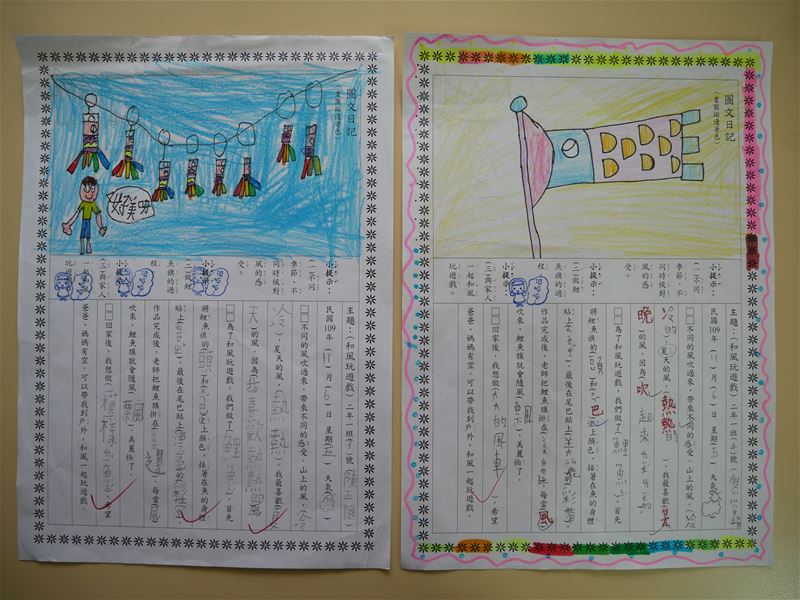 圖文日記
(畫圖描邊著色)
好美ㄛ
小提示:
(一)不同
季節、不
同時候對
風的感
受。
小提示:
(二)做鯉
魚旗的過
程
小提示:
(三)與家人
一起和風
玩遊戲。
主題:(和風玩遊戲) 二年一班
民國109年(11)月(6)日 星期(五) 天氣
不同的風吹過來,帶來不同的感受。山上的風,冷
冷,夏天的風,熱熱,我最喜歡(夏
天)的風,因為我喜歡熱熱風
為了和風玩遊戲,我們做了(鯉魚),首先
將鯉魚旗的(頭)和(尾巴)塗上顏色,接著在魚的身體
貼上,最後在尾巴貼上
作品完成後,老師把鯉魚旗掛在,每當(風)
吹來,鯉魚旗就會隨風(飄),美麗極了。
回家後,我想做,希望
爸爸、媽媽有空,可以帶我到戶外,和風一起玩遊戲。
圖文日記
(畫圖描邊著色)
小提示:
(一)不同
季節、不
同時候對
風的感
受。
小提示:
(二)做鯉
魚旗的過
程
小提示:
(三)與家人
一起和風
玩遊戲。
主題:(和風玩遊戲) 二年一班
民國109年(11)月(6)日 星期(五) 天氣
不同的風吹過來,帶來不同的感受。山上的風,
冷的,夏天的風,熱熱的,我最喜歡
晚的風,因為吹起來
為了和風玩遊戲,我們做了(鯉魚),首先
將鯉魚旗的(頭)和巴塗上顏色,接著在魚的身體
貼上,最後在尾巴貼上
作品完成後,老師把鯉魚旗掛在,每當風
吹來,鯉魚旗就會隨風,美麗極了。
回家後,我想做大大的風車,希望
爸爸、媽媽有空,可以帶我到戶外,和風一起玩遊戲。